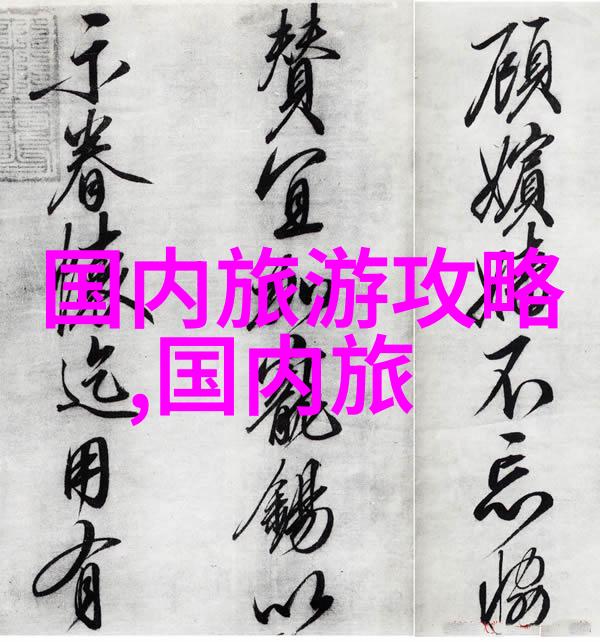 国内旅游攻略
,国内旅
顧嬪不忘恊
賛宜寵錫以
示眷懷迄用有